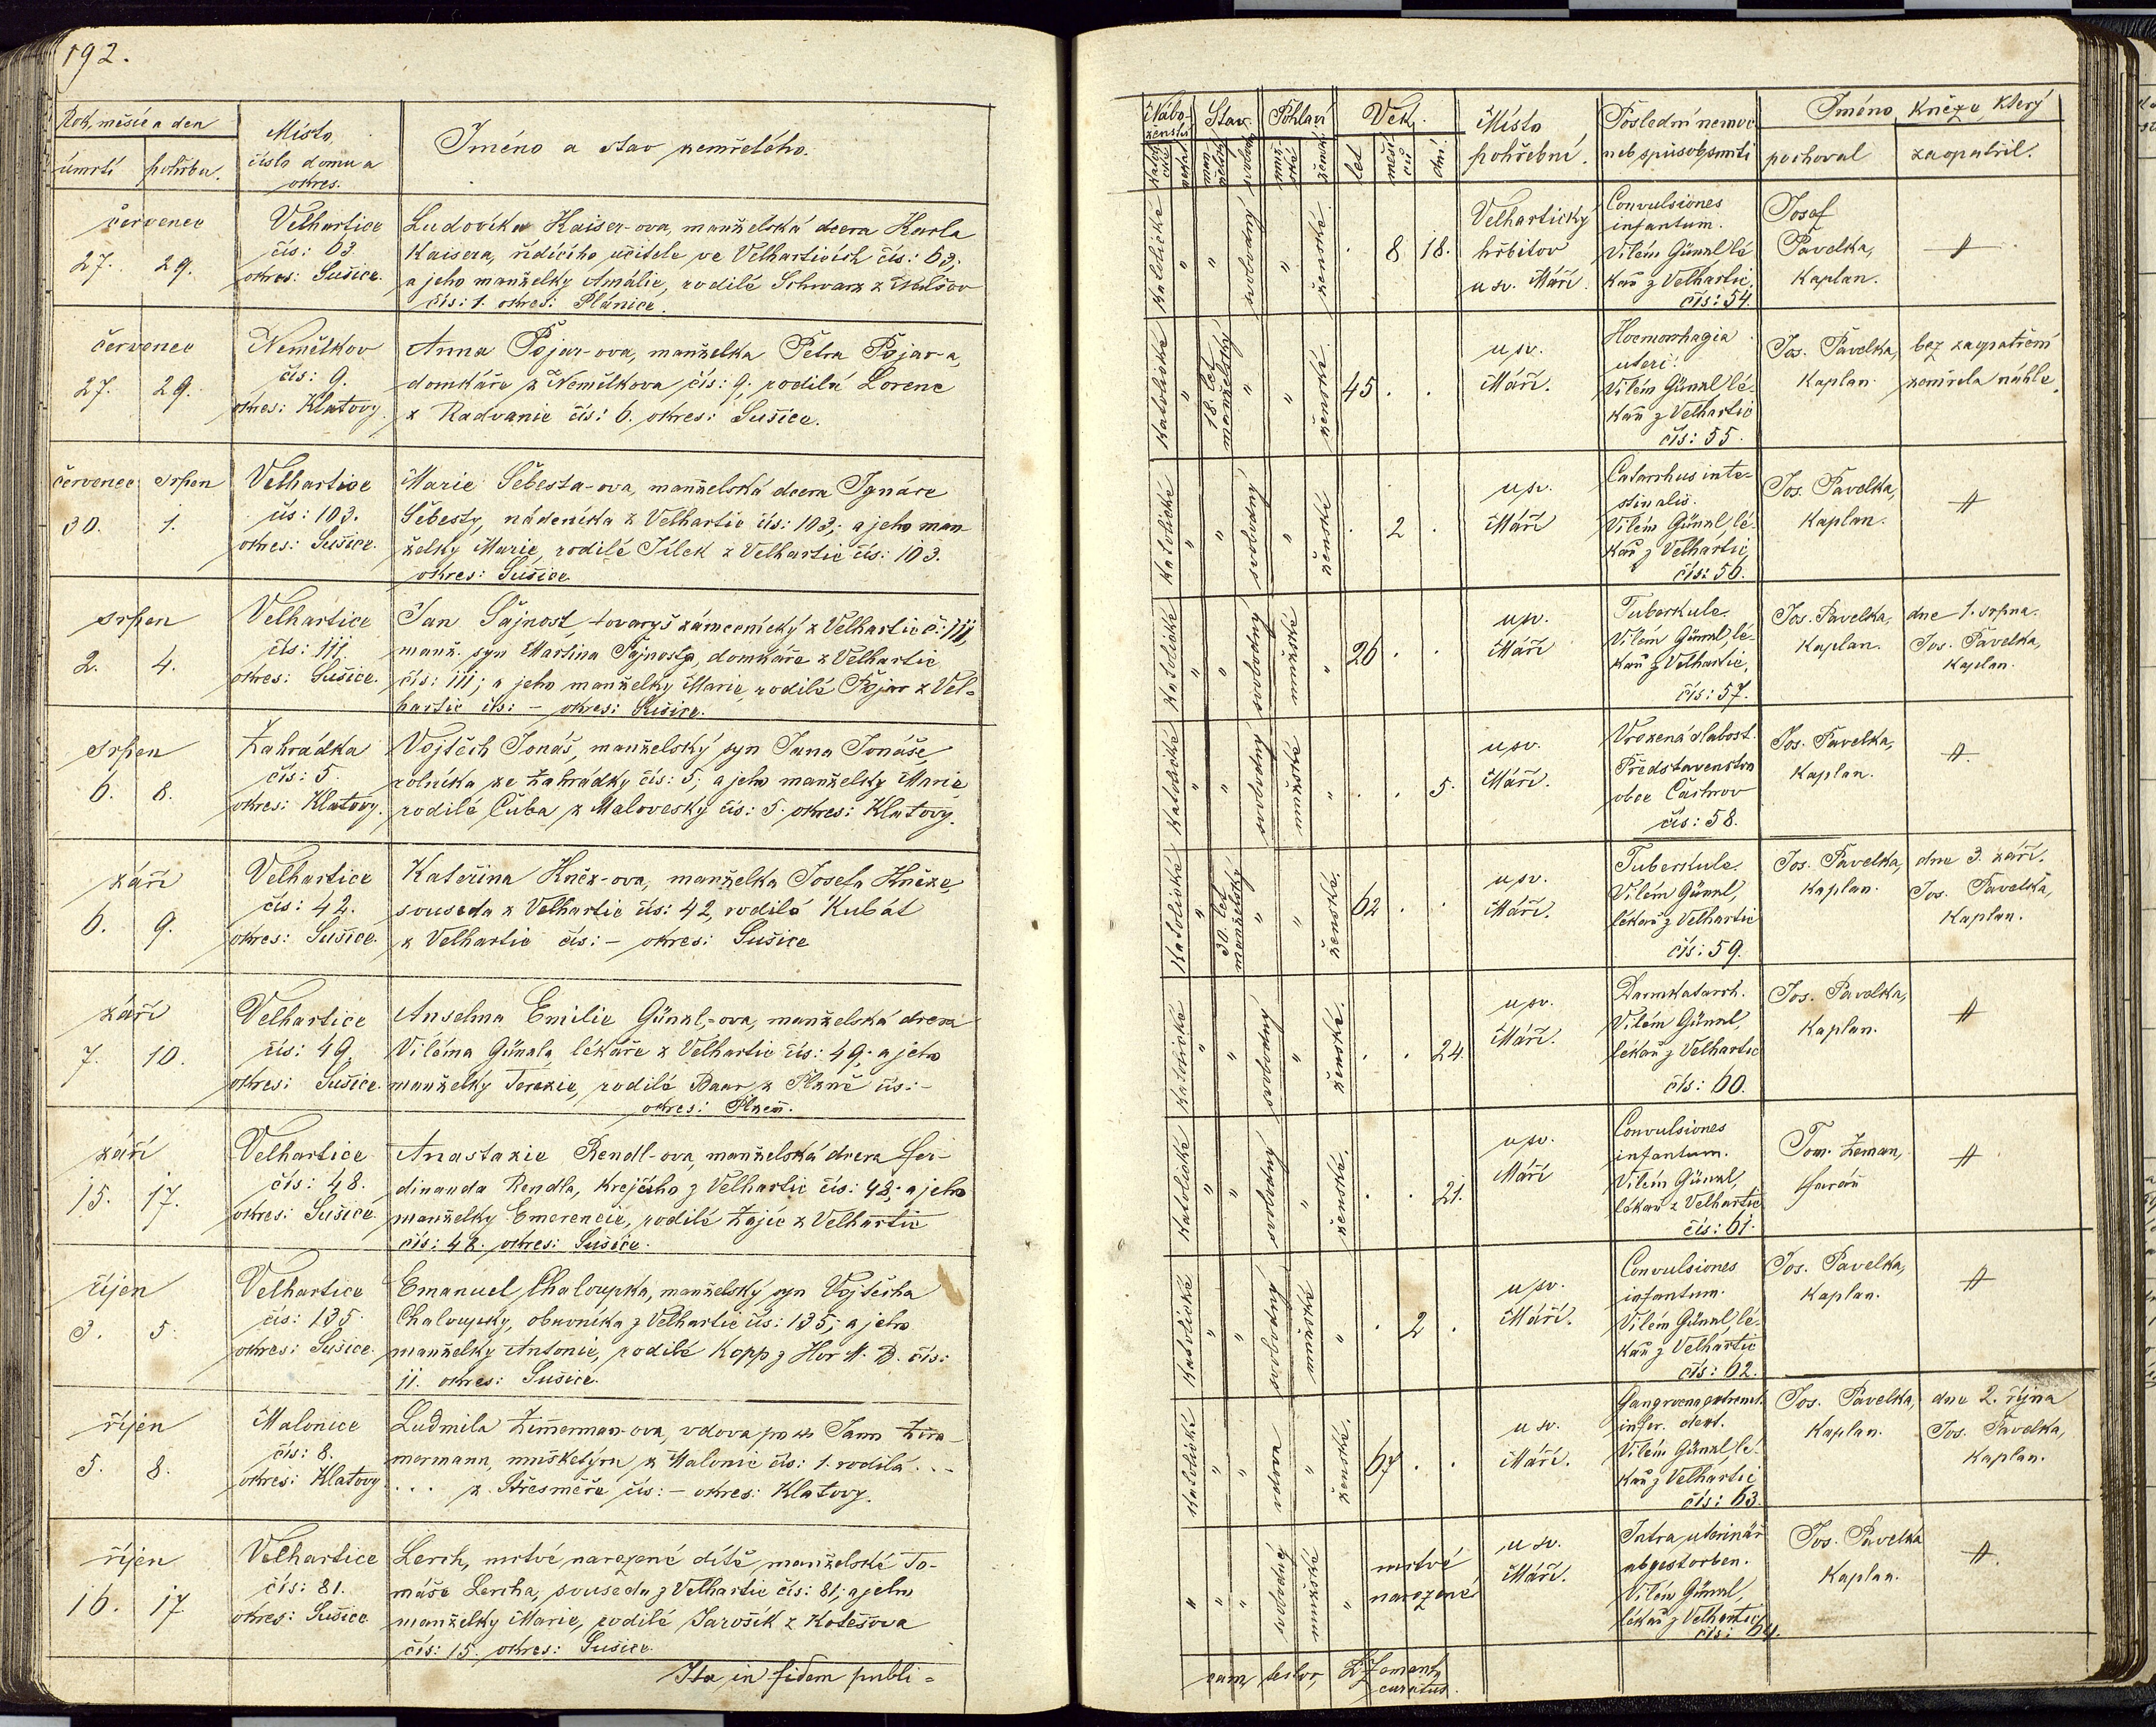 192.
Rok, měsíc a den
úmrtí pohřbu.
Místo,
číslo domu a
okres.
Jméno a stav zemřelého.
červenec
27. 29.
Velhartice
čís: 63.
okres: Sušice.
Ludovíka Kaiser-ova, manželská dcera Karla
Kaisera, řídícího učitele ve Velharticích čís: 63;
a jeho manželky Amálie, rodilé Schwarz z
čís: 1. okres: Plánice.
červenec
27. 29.
Němělkov
čís: 9.
okres: Klatovy.
Anna Pojar-ova, manželka Petra Pojar-a,
domkáře z Němělkova čís: 9; rodilá Lorenc
z Radvanic čís: 6. okres: Sušice.
červenec srpen
30. 1.
Velhartice
čís: 103.
okres: Sušice.
Marie Šebesta-ova, manželská dcera Ignáce
Šebesty, nádeníka z Velhartic čís: 103; a jeho man
želky Marie, rodilé Jílek z Velhartic čís: 103.
okres: Sušice
srpen
2. 4.
Velhartice
čís: 111.
okres: Sušice.
Jan Šajnost, tovaryš zámečnický z Velhartic č: 111,
manž. syn Martina Šajnosta, domkáře z Velhartic
čís: 111; a jeho manželky Marie, rodilé Pojar z Vel-
hartic čís: – okres: Sušice.
srpen
6. 8.
Zahrádka
čís: 5.
okres: Klatovy.
Vojtěch Jonáš, manželský syn Jana Jonáše,
rolníka ze Zahrádky čís: 5; a jeho manželky Marie
rodilé Čuba z Malovesky čís: 5. okres: Klatovy.
září
6. 9.
Velhartice
čís: 42.
okres: Sušice.
Kateřina Kněz-ova, manželka Josefa Kněze,
souseda z Velhartic čís: 42, rodilá Kubát
z Velhartic čís: – okres: Sušice
září
7. 10.
Velhartice
čís: 49.
okres: Sušice.
Anselma Emilie Günzl-ova, manželská dcera
Viléma Günzla, lékaře z Velhartic čís: 49; a jeho
manželky Terezie, rodilé Baar z Plzně čís: –
okres: Plzeň.
září
15. 17.
Velhartice
čís: 48.
okres: Sušice.
Anastazie Rendl-ova, manželská dcera Fer-
dinanda Rendla, krejčího z Velhartic čís: 48; a jeho
manželky Emerencie, rodilé Zajíc z Velhartic
čís: 48. okres: Sušice.
říjen
3. 5.
Velhartice
čís: 135.
okres: Sušice.
Emanuel Chaloupka, manželský syn Vojtěcha
Chaloupky, obuvníka z Velhartic čís: 135; a jeho
manželky Antonie, rodilé Kopp z Hor M. B. čís:
11. okres: Sušice.
říjen
5. 8.
Malonice
čís: 8.
okres: Klatovy
Ludmila Zimmerman-ova, vdova po Janu Zim-
mermann, z Malonic čís: 1. rodilá ...
... z Střesměře čís: – okres: Klatovy.
říjen
16. 17.
Velhartice
čís: 81.
okres: Sušice
Lerch, mrtvě narozené dítě, manželské To-
máše Lercha, souseda z Velhartic čís: 81; a jeho
manželky Marie, rodilé Jarošík z Kotešova
čís: 15. okres: Sušice.
Ita in fidem publi=
Nábo-
ženství
Stav.
Pohlaví
Věk.
let
měsí
ců
dní.
Místo
pohřební.
Poslední nemoc
neb způsob smrti
Jméno kněze, který
pochoval
zaopatřil.
katolické " " svobodný " ženské . 8 18.
Velhartický
hřbitov
u sv. Máří.
Convulsiones
infantum.
Vilém Günzl lé
kař z Velhartic,
čís: 54.
Josef
Pavelka,
Kaplan.
katolické " 18. let manželský " " ženské 45 . .
u sv.
Máří.
Hoemorrhagia
uteri.
Vilém Günzl lé-
kař z Velhartic
čís: 55.
Jos. Pavelka,
Kaplan.
bez zaopatření
zemřela náhle.
katolické " " svobodný " ženské . 2 .
u sv.
Máří
Catarrhus inte-
stinalis.
Vilém Günzl, lé-
kař z Velhartic,
čís: 56.
Jos. Pavelka,
Kaplan.
katolické " " svobodný mužské " 26 . .
u sv.
Máří
Tuberkule.
Vilém Günzl, lé-
kař z Velhartic,
čís: 57.
Jos. Pavelka,
Kaplan.
dne 1. srpna.
Jos. Pavelka,
Kaplan.
katolické " " svobodný mužské " . . 5.
u sv.
Máří.
Vrozená slabost.
Představenstvo
obce Čachrov
čís: 58.
Jos. Pavelka,
Kaplan.
katolické " 30. let manželský " " ženské. 62 . .
u sv.
Máří.
Tuberkule.
Vilém Günzl,
lékař z Velhartic
čís: 59.
Jos. Pavelka,
Kaplan.
dne 3. září.
Jos. Pavelka,
Kaplan.
katolické " " svobodný " ženské. . . 24.
u sv.
Máří.
Darmkatarrh.
Vilém Günzl,
lékař z Velhartic
čís: 60.
Jos. Pavelka,
Kaplan.
katolické " " svobodný " ženské. . . 21.
u sv.
Máří
Convulsiones
infantum.
Vilém Günzl,
lékař z Velhartic
čís: 61.
Tom. Zeman,
farář
katolické " " svobodný mužské " . 2 .
u sv.
Máří.
Convulsiones
infantum.
Vilém Günzl, lé-
kař z Velhartic
čís: 62.
Jos. Pavelka,
Kaplan.
katolické " " vdova " ženské. 67 . .
u sv.
Máří.
Gangroena extremit.
infer. dext.
Vilém Günzl, lé-
kař z Velhartic
čís: 63.
Jos. Pavelka,
Kaplan.
dne 2. října
Jos. Pavelka,
Kaplan.
" " " svobodný mužské "
mrtvě
narozené
u sv.
Máří.
Intra uterinär
abgestorben.
Vilém Günzl,
lékař z Velhartic,
čís: 64.
Jos. Pavelka
Kaplan.
cam testor, Zemant
curatus.